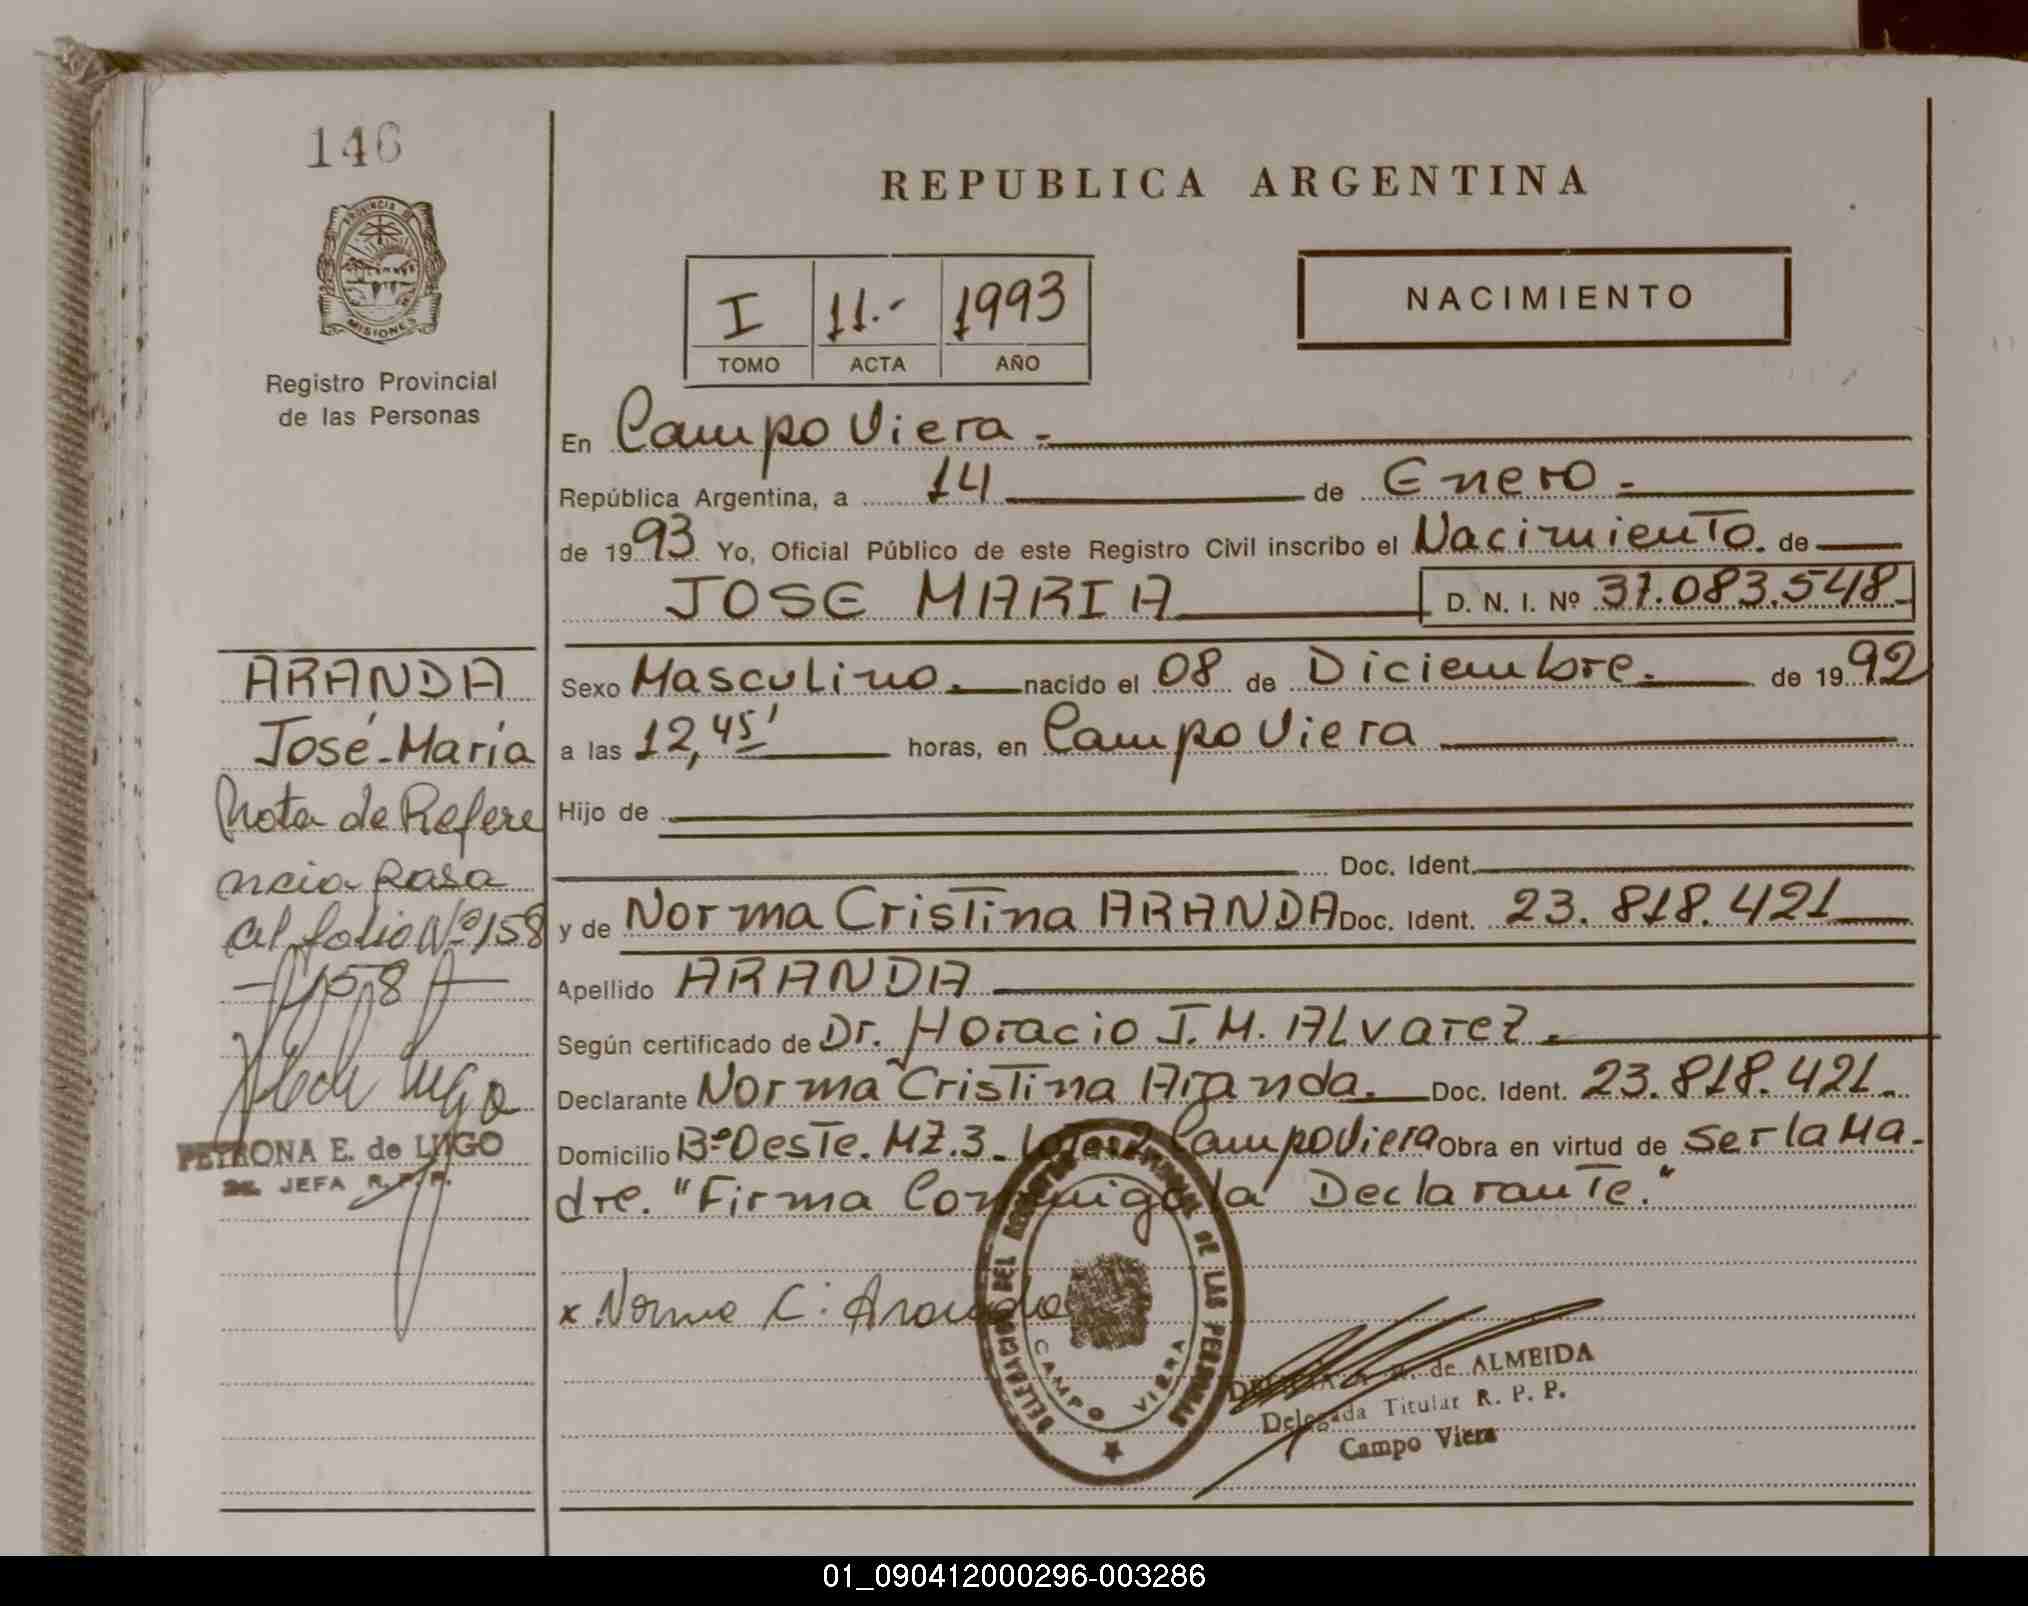 146
PROVINCIA DE
MISIONES
Registro Provincial
de las Personas
REPUBLICA ARGENTINA
I 11.- 1993
TOMO ACTA AÑO
NACIMIENTO
En Campo Viera.-
República Argentina, a 14 de Enero.-
de 1993 Yo, Oficial Público de este Registro Civil inscribo el Nacimiento. de
JOSE MARIA D. N. I. Nº 37.083.548-
Sexo Masculino. nacido el 08 de Diciembre. de 1992
a las 12,45' horas, en Campo Viera
Hijo de
Doc. Ident.
y de Norma Cristina ARANDA Doc. Ident. 23.818.421
Apellido ARANDA
Según certificado de Dr. Horacio J.M. ALvarez.
Declarante Norma Cristina Aranda. Doc. Ident. 23.818.421.
Domicilio Bº Oeste. MZ.3- Lote 2 Campo Viera Obra en virtud de ser la Ma-
dre. "Firma Conmigo la Declarante."
x Norma C. Aranda
DELEGACION DEL REGISTRO PROVINCIAL DE LAS PERSONAS
CAMPO VIERA
de ALMEIDA
Delegada Titular R. P. P.
Campo Viera
ARANDA
José-María
Nota de Refere
ncia pasa
al folio Nº 158
-158-
PETRONA E. de LUGO
JEFA R.P.P.
01_090412000296-003286